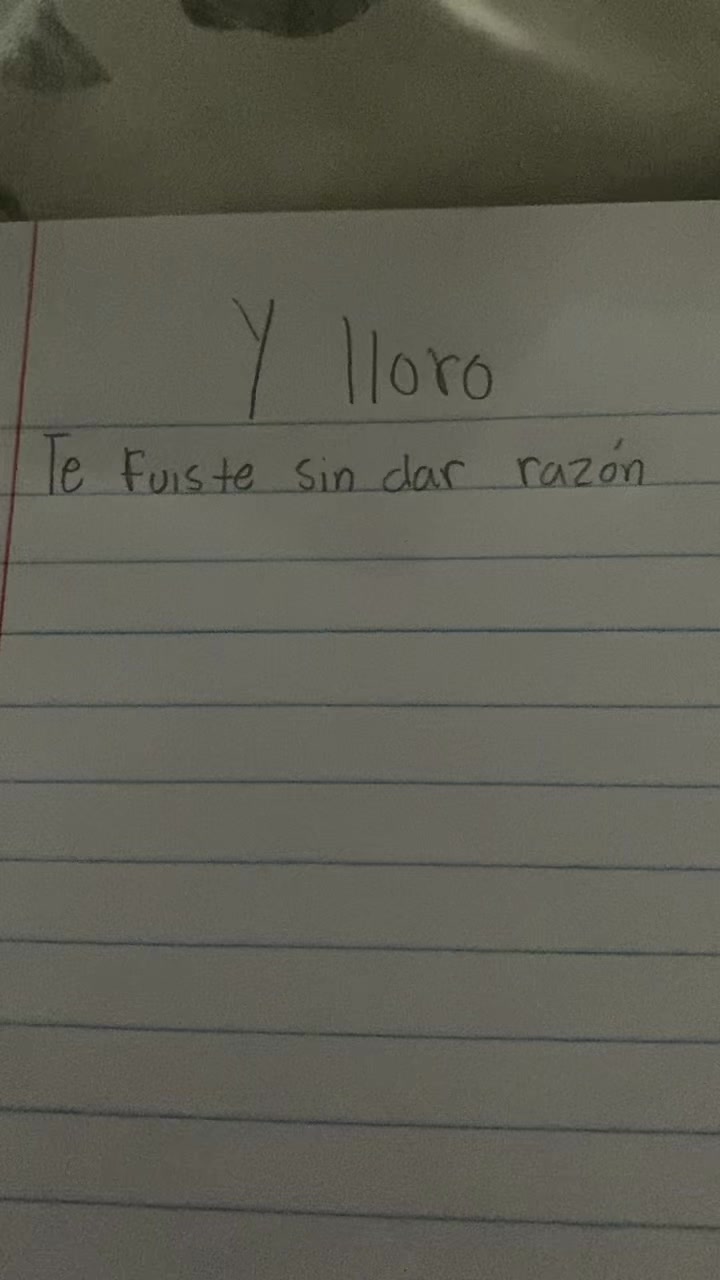 Y lloro
Te fuiste sin dar razón